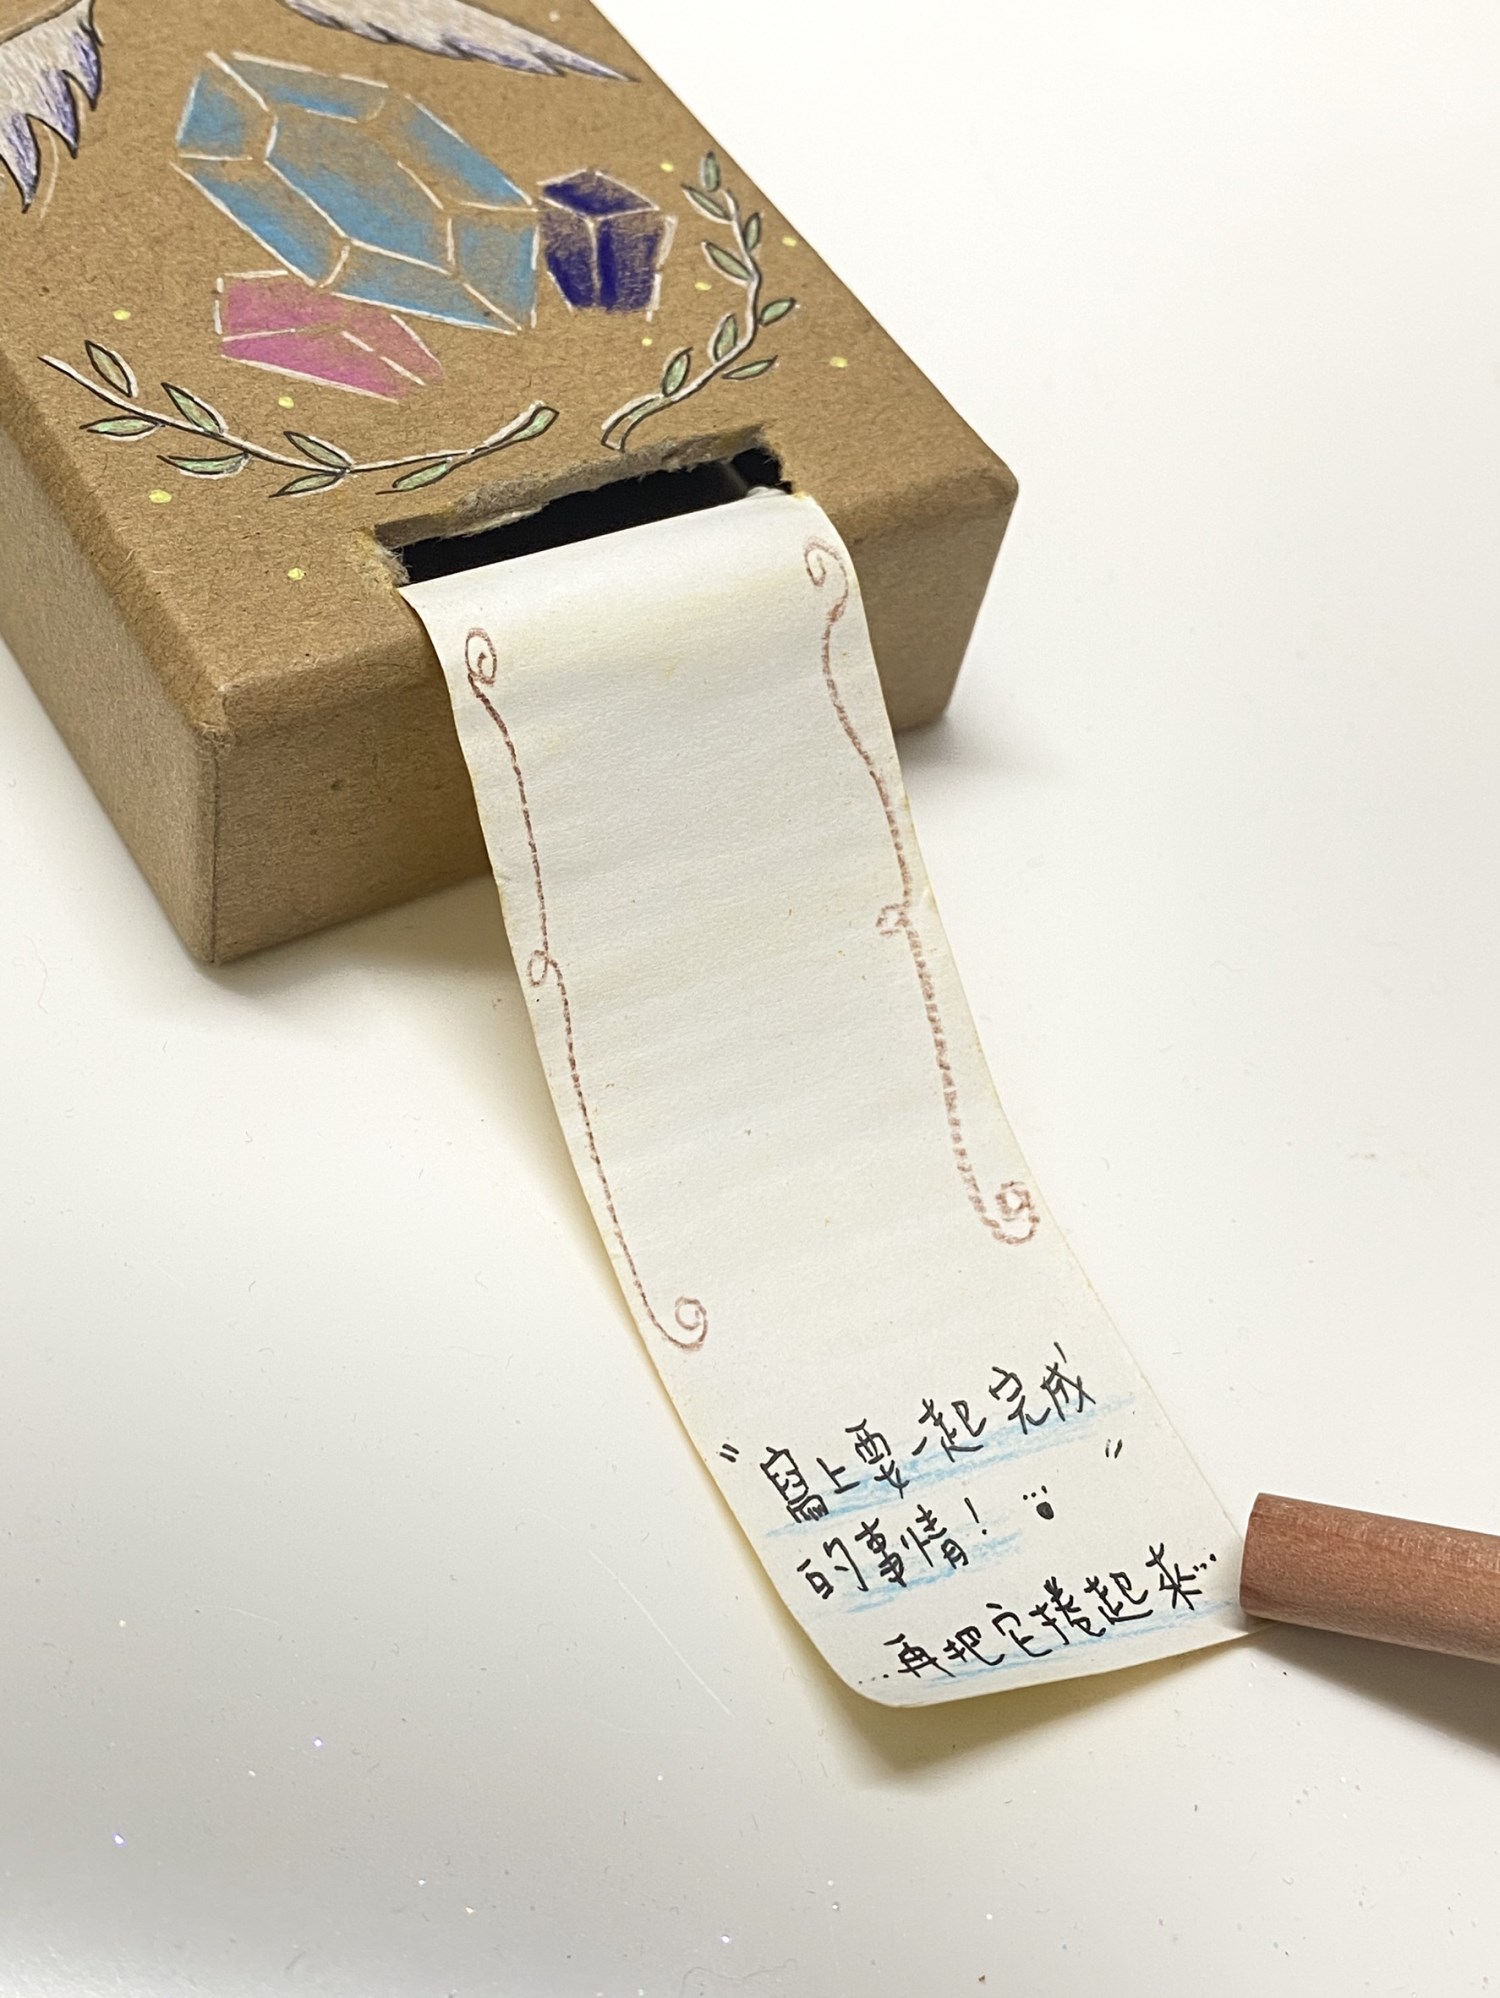 "寫上要一起完成"
的事情！
...再把它捲起來...